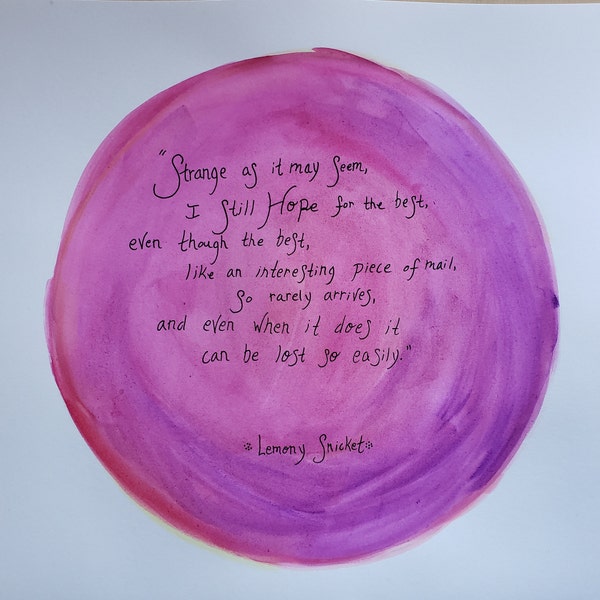 "Strange as it may seem,
I still Hope for the best,
even though the best,
like an interesting piece of mail,
so rarely arrives,
and even when it does it
can be lost so easily."
Lemony Snicket